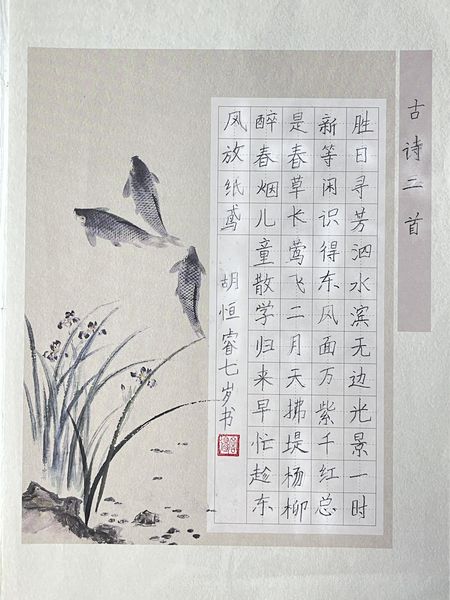 古诗二首
胜日寻芳泗水滨无边光景一时
新等闲识得东风面万紫千红总
是春草长莺飞二月天拂堤杨柳
醉春烟儿童散学归来早忙趁东
风放纸鸢 胡恒睿七岁书